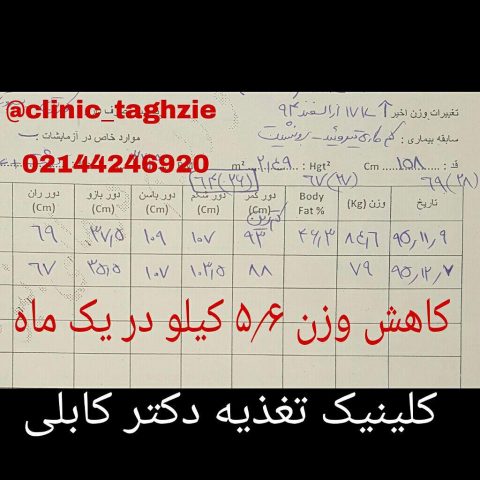 @clinic_taghzie
تغییرات وزن اخیر ↑ ۱۷k از اسفند ۹۴
سابقه بیماری : کم کاری تیروئید
موارد خاص در آزمایشات :
02144246920
قد : ۱۵۸ Cm Hgt² : ۲٫۴۹ m²
۶۹(۲۸) ۶۷(۲۷) ۶۴(۲۶)
تاریخ وزن (Kg) Body Fat % دور کمر (Cm) دور شکم (Cm) دور باسن (Cm) دور بازو (Cm) دور ران (Cm)
۹۵,۱۱,۹ ۸۴٫۶ ۴۶٫۳ ۹۳ ۱۰۷ ۱۰۹ ۳۷٫۵ ۶۹
۹۵,۱۲,۷ ۷۹ ۸۸ ۱۰۳٫۵ ۱۰۷ ۳۵٫۵ ۶۷
کاهش وزن ۵٫۶ کیلو در یک ماه
کلینیک تغذیه دکتر کابلی